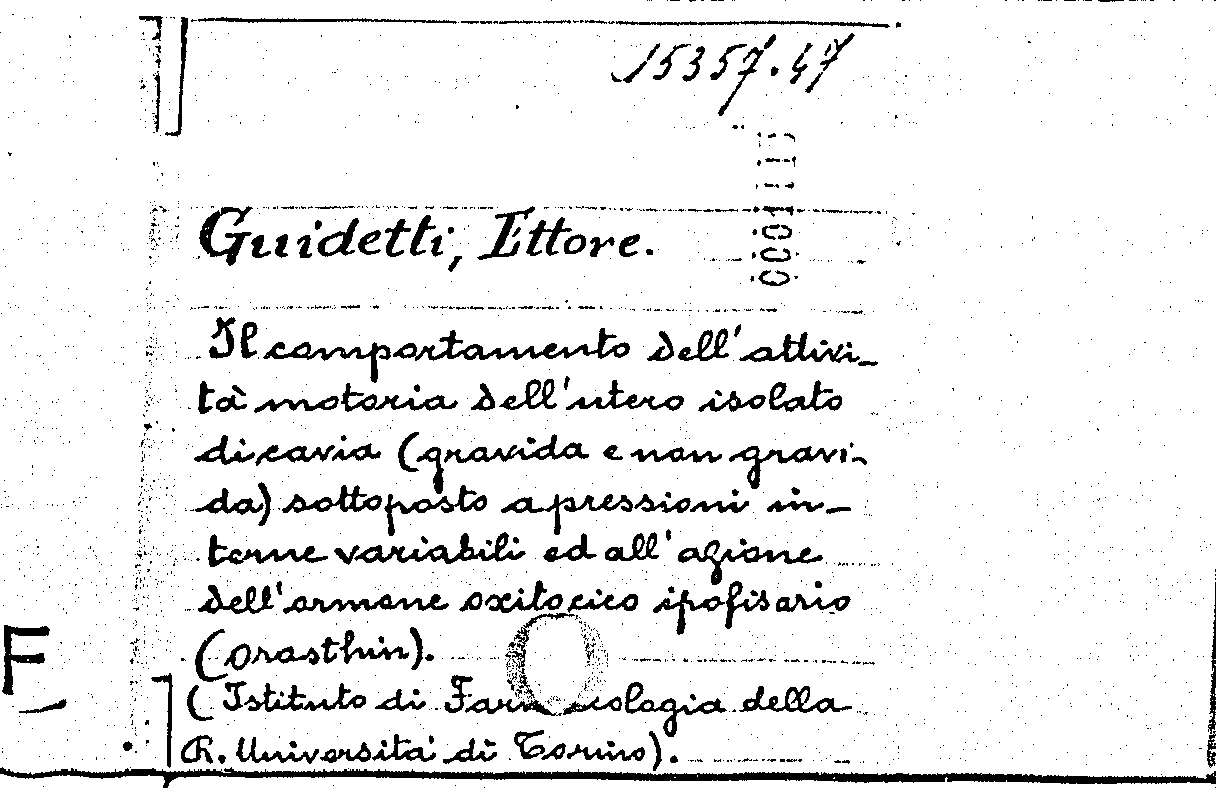 15357.47
Guidetti, Ettore.
Il comportamento dell'attivi-
tà motoria dell'utero isolato
di cavia (gravida e non gravi-
da) sottoposto a pressioni in-
terne variabili ed all'azione
dell'ormone oxitocico ipofisario
(orasthin).
F
(Istituto di Farmacologia della
R. Università di Torino).